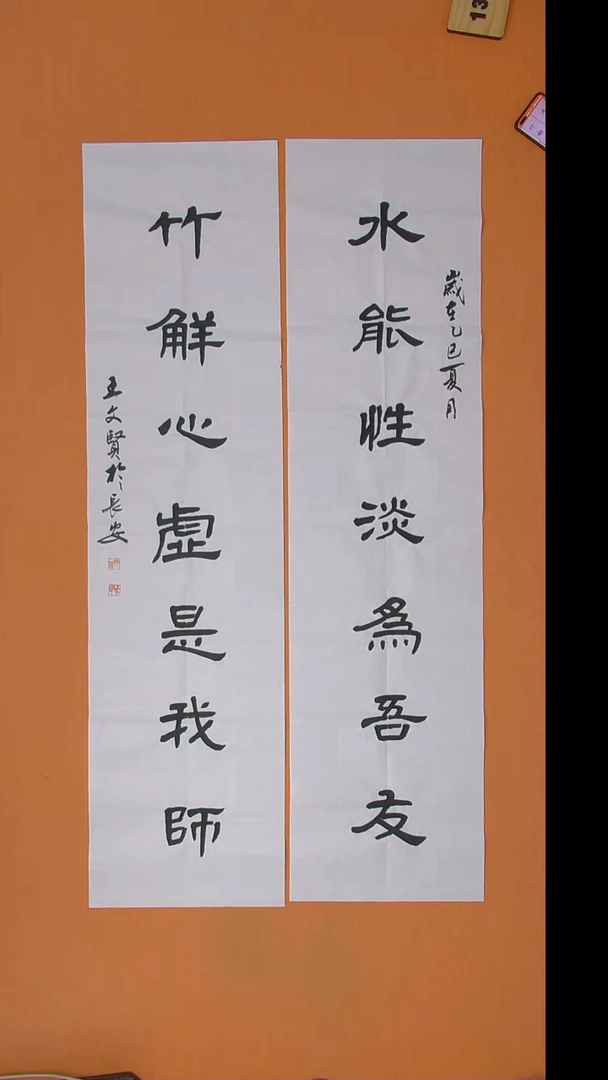 水能性淡為吾友
歲在乙巳夏月
竹解心虛是我師
王文賢於長安
13